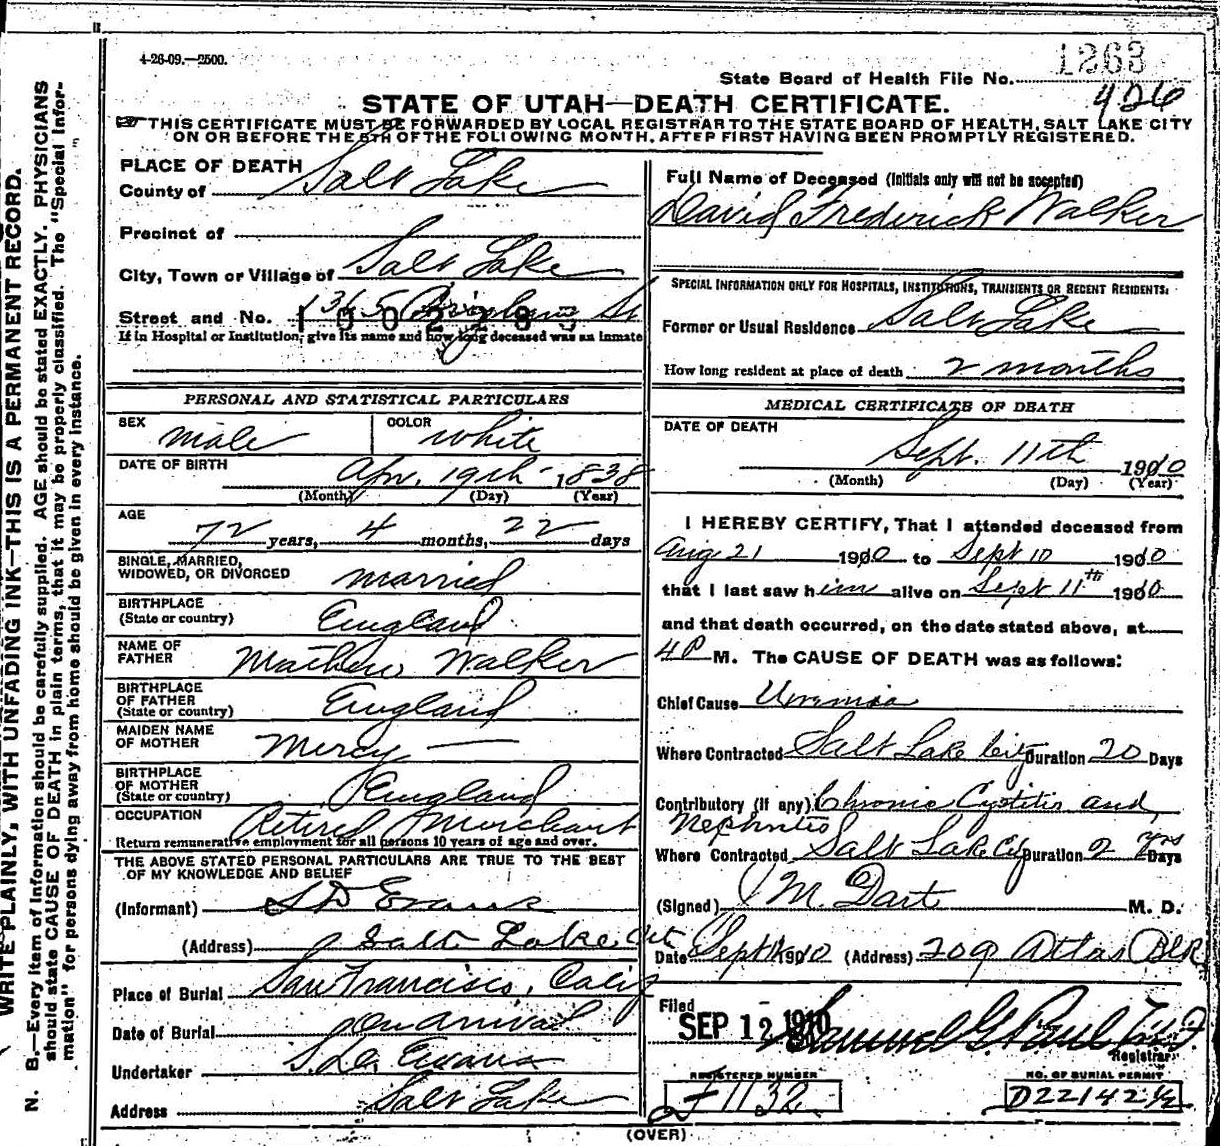 4-26-09.—2500.
1263
State Board of Health File No.
926
STATE OF UTAH—DEATH CERTIFICATE.
THIS CERTIFICATE MUST BE FORWARDED BY LOCAL REGISTRAR TO THE STATE BOARD OF HEALTH, SALT LAKE CITY
ON OR BEFORE THE 5TH OF THE FOLLOWING MONTH, AFTER FIRST HAVING BEEN PROMPTLY REGISTERED.
WRITE PLAINLY, WITH UNFADING INK—THIS IS A PERMANENT RECORD.
N. B.—Every item of information should be carefully supplied. AGE should be stated EXACTLY. PHYSICIANS
should state CAUSE OF DEATH in plain terms, that it may be properly classified. The "Special Infor-
mation" for persons dying away from home should be given in every instance.
PLACE OF DEATH
County of Salt Lake
Precinct of
City, Town or Village of Salt Lake
Street and No. 1365 St
If in Hospital or Institution, give its name and how long deceased was an inmate
PERSONAL AND STATISTICAL PARTICULARS
SEX male COLOR white
DATE OF BIRTH Apr. 19th 1838
(Month) (Day) (Year)
AGE
72 years, 4 months, 22 days
SINGLE, MARRIED,
WIDOWED, OR DIVORCED married
BIRTHPLACE
(State or country) England
NAME OF
FATHER Mathew Walker
BIRTHPLACE
OF FATHER
(State or country) England
MAIDEN NAME
OF MOTHER Mercy —
BIRTHPLACE
OF MOTHER
(State or country) England
OCCUPATION Retired Merchant
Return remunerative employment for all persons 10 years of age and over.
THE ABOVE STATED PERSONAL PARTICULARS ARE TRUE TO THE BEST
OF MY KNOWLEDGE AND BELIEF
(Informant) S D Evans
(Address) Salt Lake Cit
Place of Burial San Francisco, Calif
Date of Burial On arrival
Undertaker S. D. Evans
Address Salt Lake
Full Name of Deceased (Initials only will not be accepted)
David Frederick Walker
SPECIAL INFORMATION ONLY FOR HOSPITALS, INSTITUTIONS, TRANSIENTS OR RECENT RESIDENTS.
Former or Usual Residence Salt Lake
How long resident at place of death 2 months
MEDICAL CERTIFICATE OF DEATH
DATE OF DEATH
Sept. 11th 1910
(Month) (Day) (Year)
I HEREBY CERTIFY, That I attended deceased from
Aug 21 1910 to Sept 10 1910
that I last saw him alive on Sept 11th 1910
and that death occurred, on the date stated above, at
4 P M. The CAUSE OF DEATH was as follows:
Chief Cause Uremia
Where Contracted Salt Lake City Duration 20 Days
Contributory (if any) Chronic Cystitis and
Nephritis
Where Contracted Salt Lake City Duration 2 yrs Days
(Signed) M. Dart M. D.
Date Sept 12 1910 (Address) 209 Atlas Blk
Filed
SEP 12 1910 Samuel G. Paul
Registrar
REGISTERED NUMBER
F 1132
NO. OF BURIAL PERMIT
D22142½
(OVER)